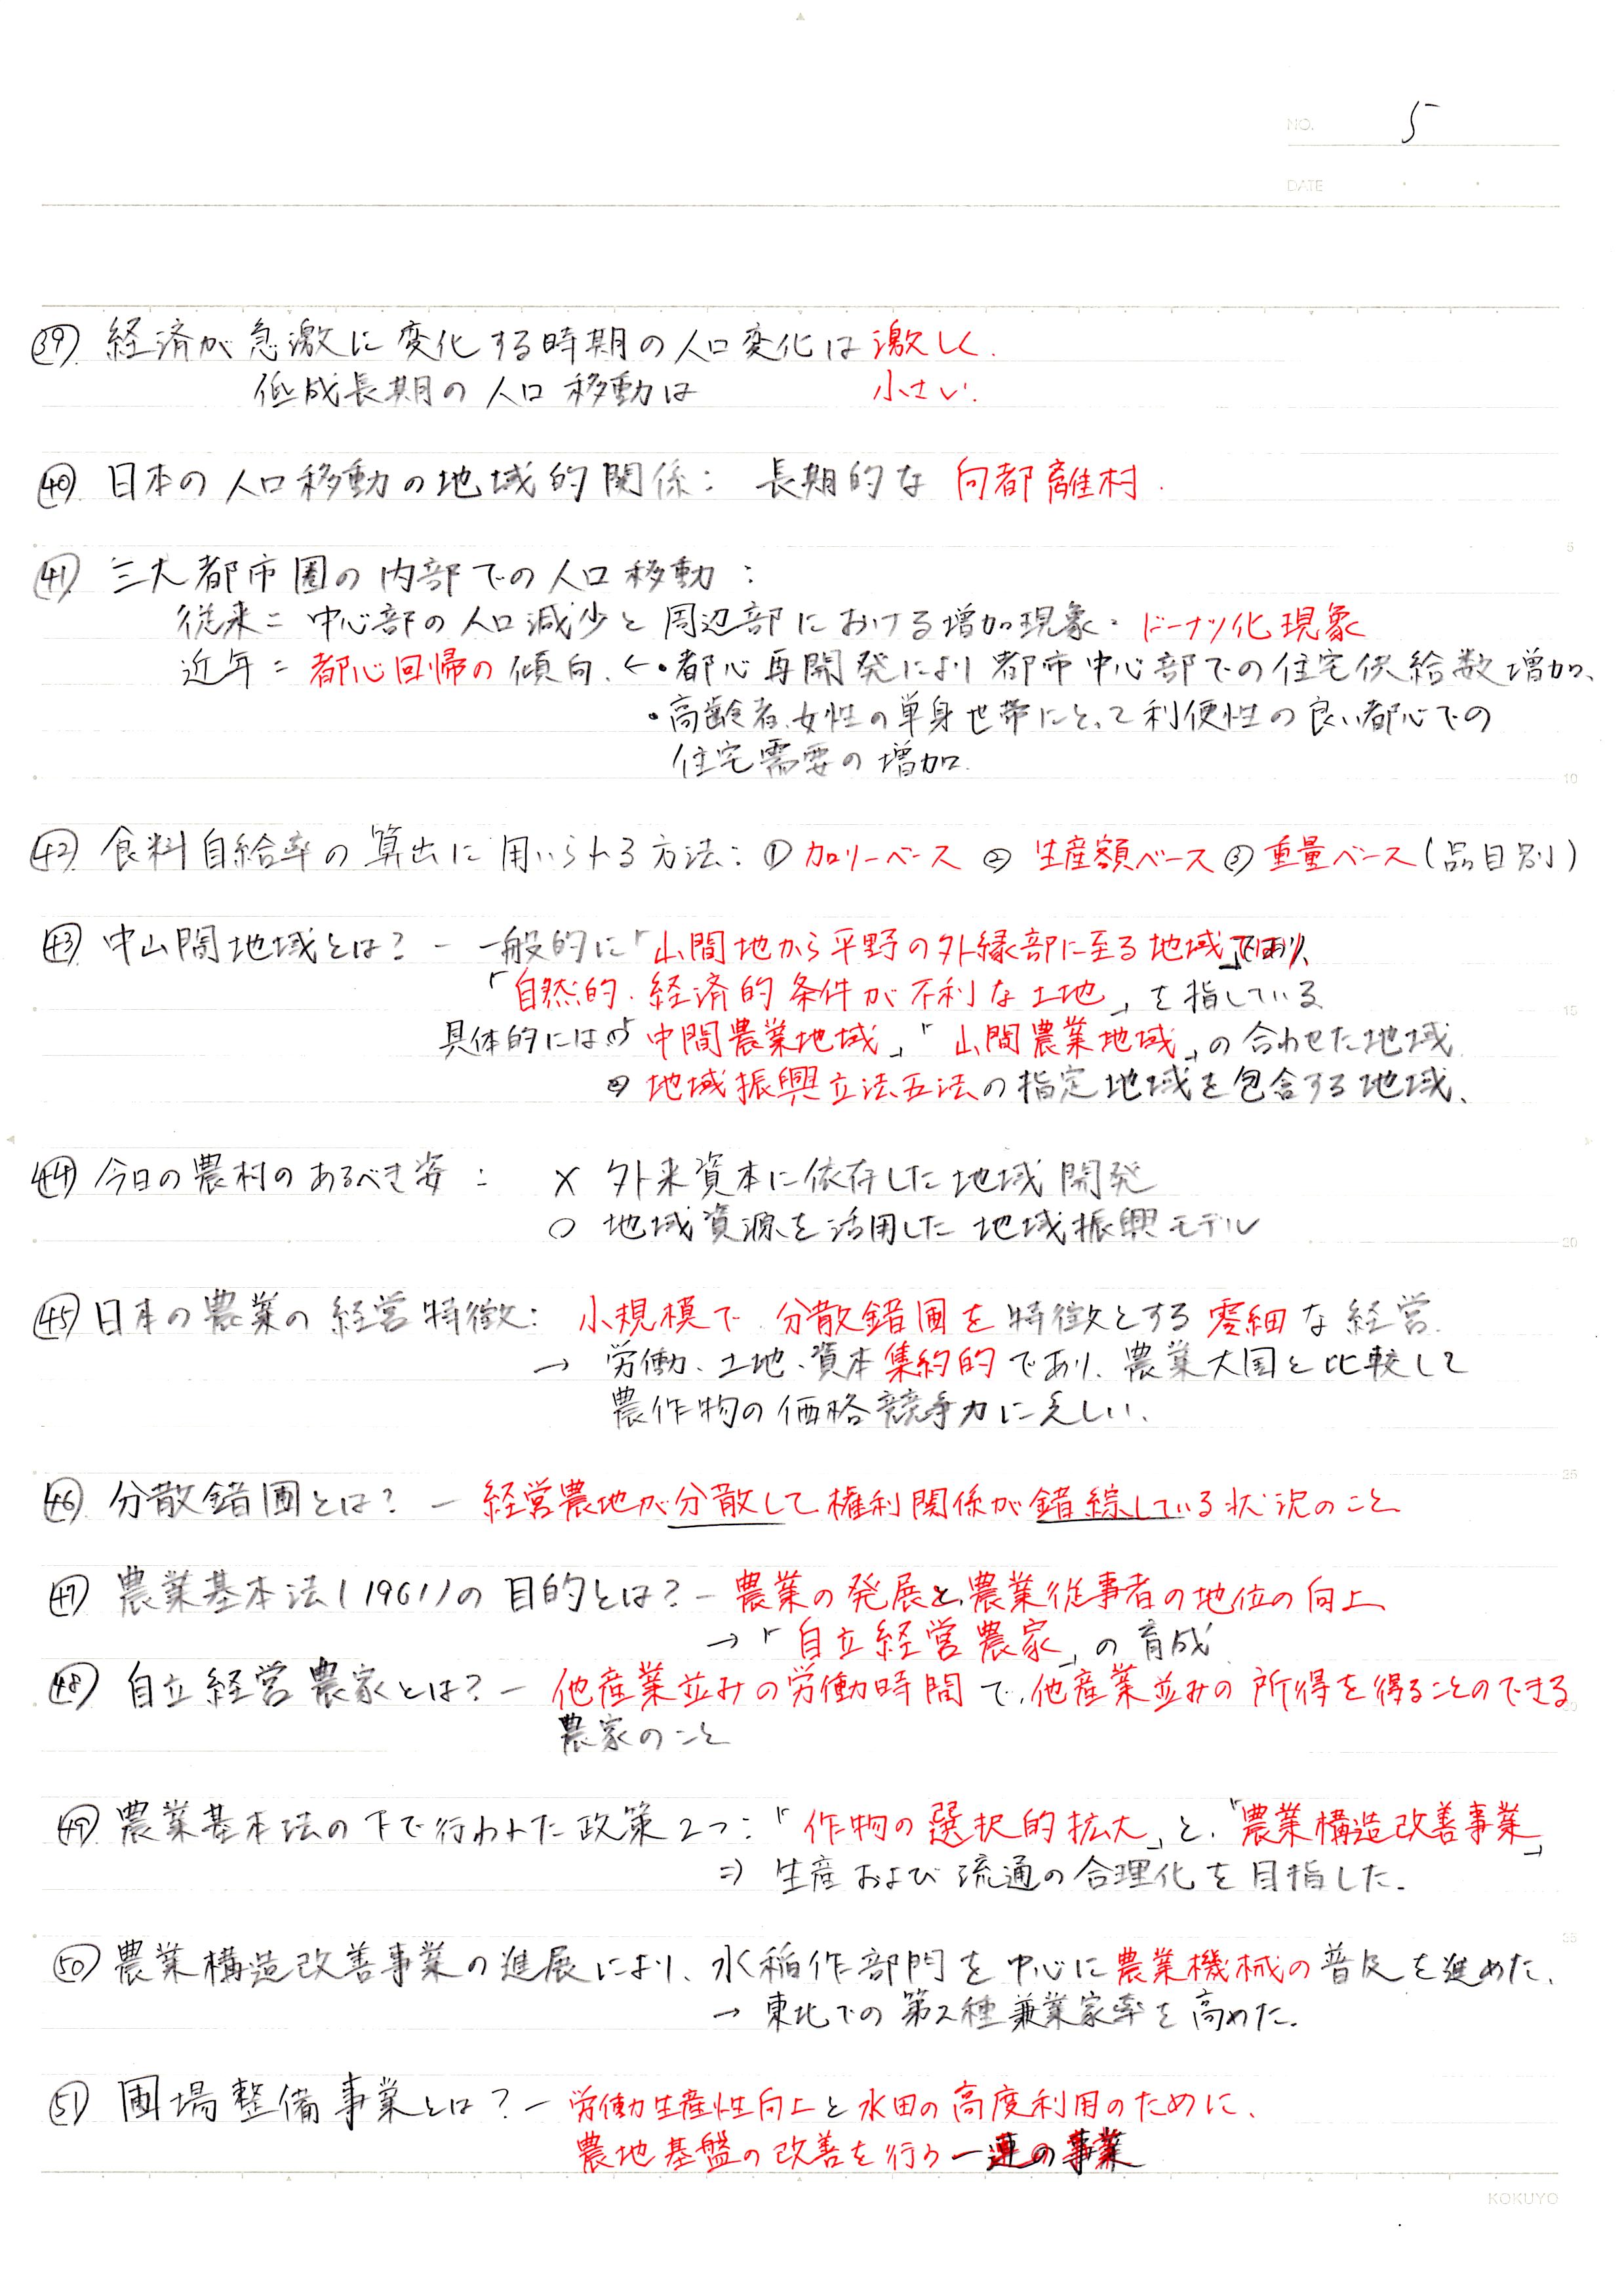 NO. 5
DATE
㊴ 経済が急激に変化する時期の人口変化は激しく.
低成長期の人口移動は 小さい.
㊵ 日本の人口移動の地域的関係: 長期的な 向都離村.
㊶ 三大都市圏の内部での人口移動:
従来= 中心部の人口減少と周辺部における増加現象・ドーナツ化現象
近年= 都心回帰の傾向. ←・都心再開発により都市中心部での住宅供給数増加、
・高齢者、女性の単身世帯にとって利便性の良い都心での
住宅需要の増加.
㊷ 食料自給率の算出に用いられる方法: ① カロリーベース ② 生産額ベース ③ 重量ベース(品目別)
㊸ 中山間地域とは? - 一般的に「山間地から平野の外縁部に至る地域」であり、
「自然的・経済的条件が不利な土地」を指している
具体的には①「中間農業地域」「山間農業地域」の合わせた地域
② 地域振興立法五法の指定地域を包含する地域、
㊹ 今日の農村のあるべき姿: × 外来資本に依存した地域開発
○ 地域資源を活用した地域振興モデル
㊺ 日本の農業の経営特徴: 小規模で 分散錯圃を特徴とする零細な経営.
→ 労働、土地、資本集約的であり、農業大国と比較して
農作物の価格競争力に乏しい、
㊻ 分散錯圃とは? - 経営農地が分散して権利関係が錯綜している状況のこと
㊼ 農業基本法(1961)の目的とは? - 農業の発展と、農業従事者の地位の向上、
→「自立経営農家」の育成
㊽ 自立経営農家とは? - 他産業並みの労働時間で、他産業並みの所得を得ることのできる
農家のこと
㊾ 農業基本法の下で行われた政策2つ:「作物の選択的拡大」と、「農業構造改善事業」
⇒ 生産および流通の合理化を目指した.
㊿ 農業構造改善事業の進展により、水稲作部門を中心に農業機械の普及を進めた、
→ 東北での第2種兼業家率を高めた.
(51) 圃場整備事業とは? - 労働生産性向上と水田の高度利用のために、
農地基盤の改善を行う一連の事業
KOKUYO